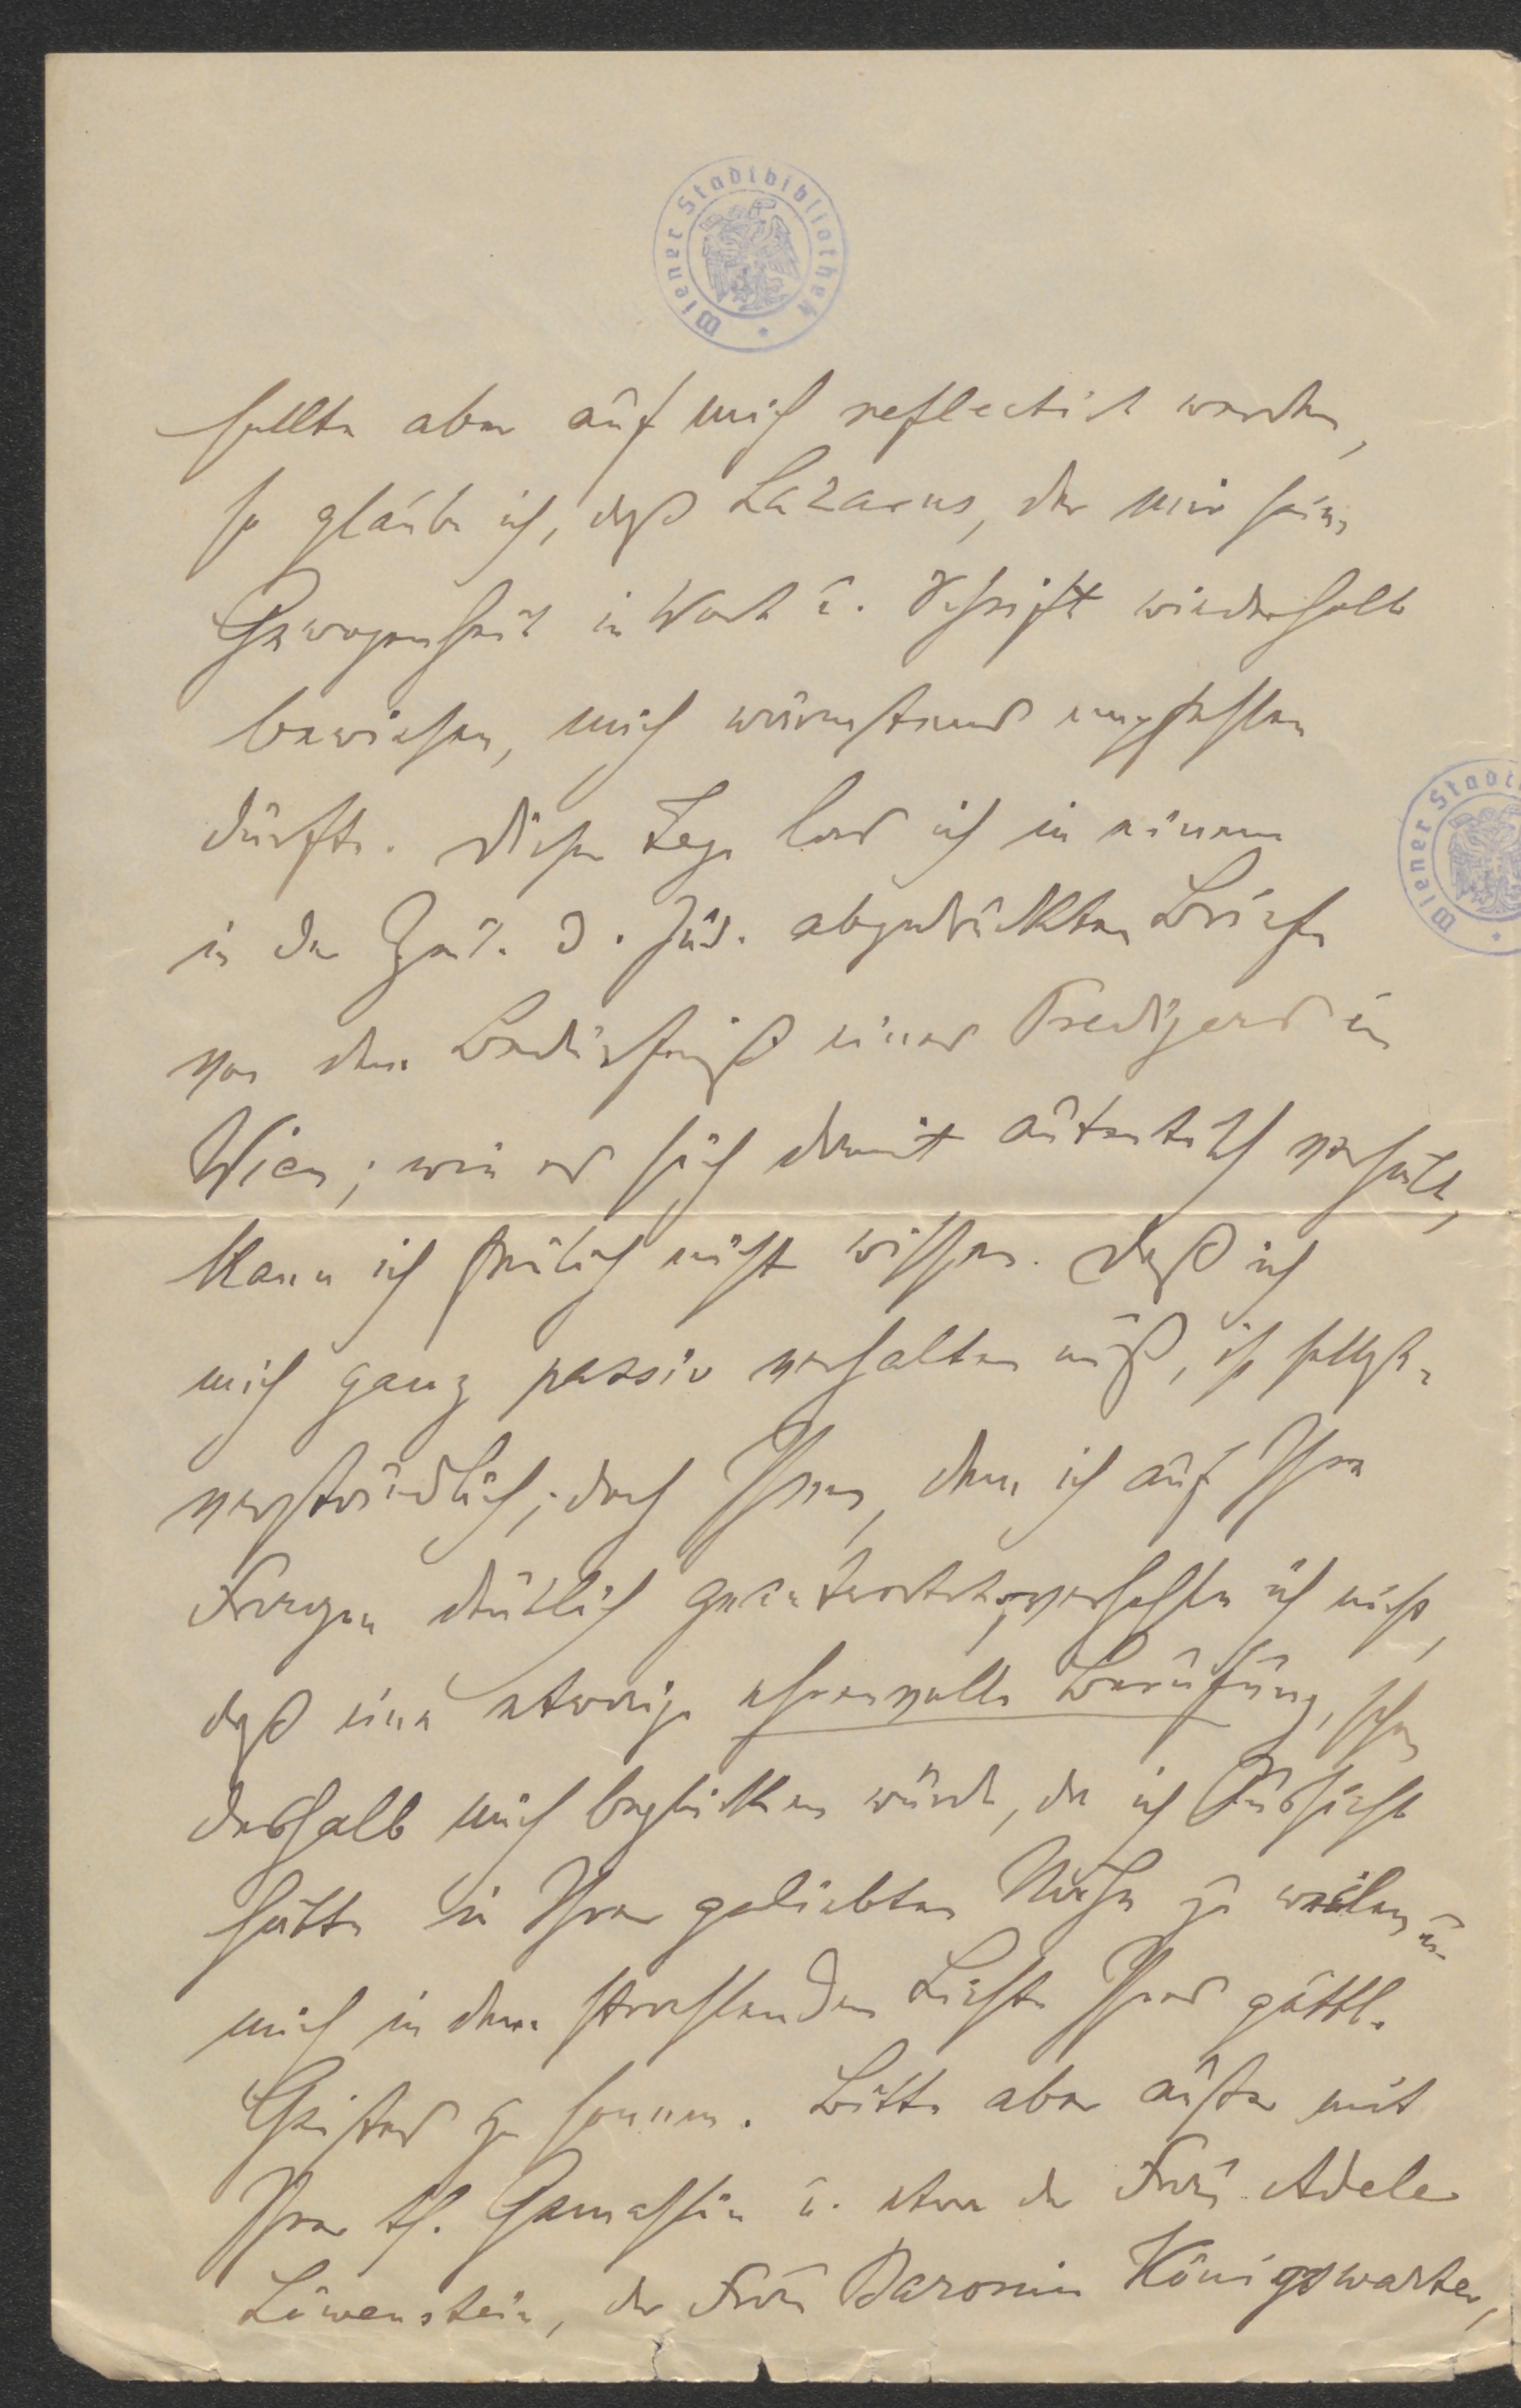 Wiener Stadtbibliothek
sollte aber auf mich reflectirt werden,
so glaube ich, daß Lazarus, der mir seine
Gewogenheit in Wort u. Schrift wiederholt
bewiesen, mich wärmstens empfehlen
dürfte. Dieser Tage las ich in einem
in der Zeit. d. Jud. abgedruckten Briefe
von dem Bedürfniß eines Predigers in
Wien; wie es sich damit verhält,
kann ich freilich nicht wissen. Daß ich
mich ganz passiv verhalten muß, ist selbst-
verständlich; doch Ihnen, dem ich auf Ihre
Fragen deutlich geantwortet, verhehle ich nicht,
daß eine etwaige ehrenvolle Berufung, schon
deshalb mich beglücken würde, da ich Aussicht
hätte in Ihrer geliebten Nähe zu weilen u.
mich in dem strahlenden Lichte Ihres göttl.
Geistes zu sonnen. Bitte aber außer mit
Ihrer th. Gemahlin u. etwa der Frau Adele
Löwenstein, der Frau Baronin Königswarter,
Wiener Stadt